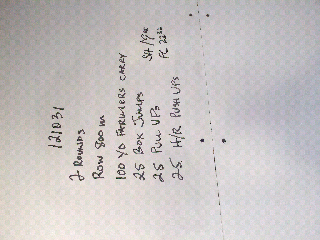 121031
2 ROUNDS
ROW 800 m
100 YD FARMERS CARRY
25 BOX JUMPS
25 PULL UPS
25 H/R PUSH UPS